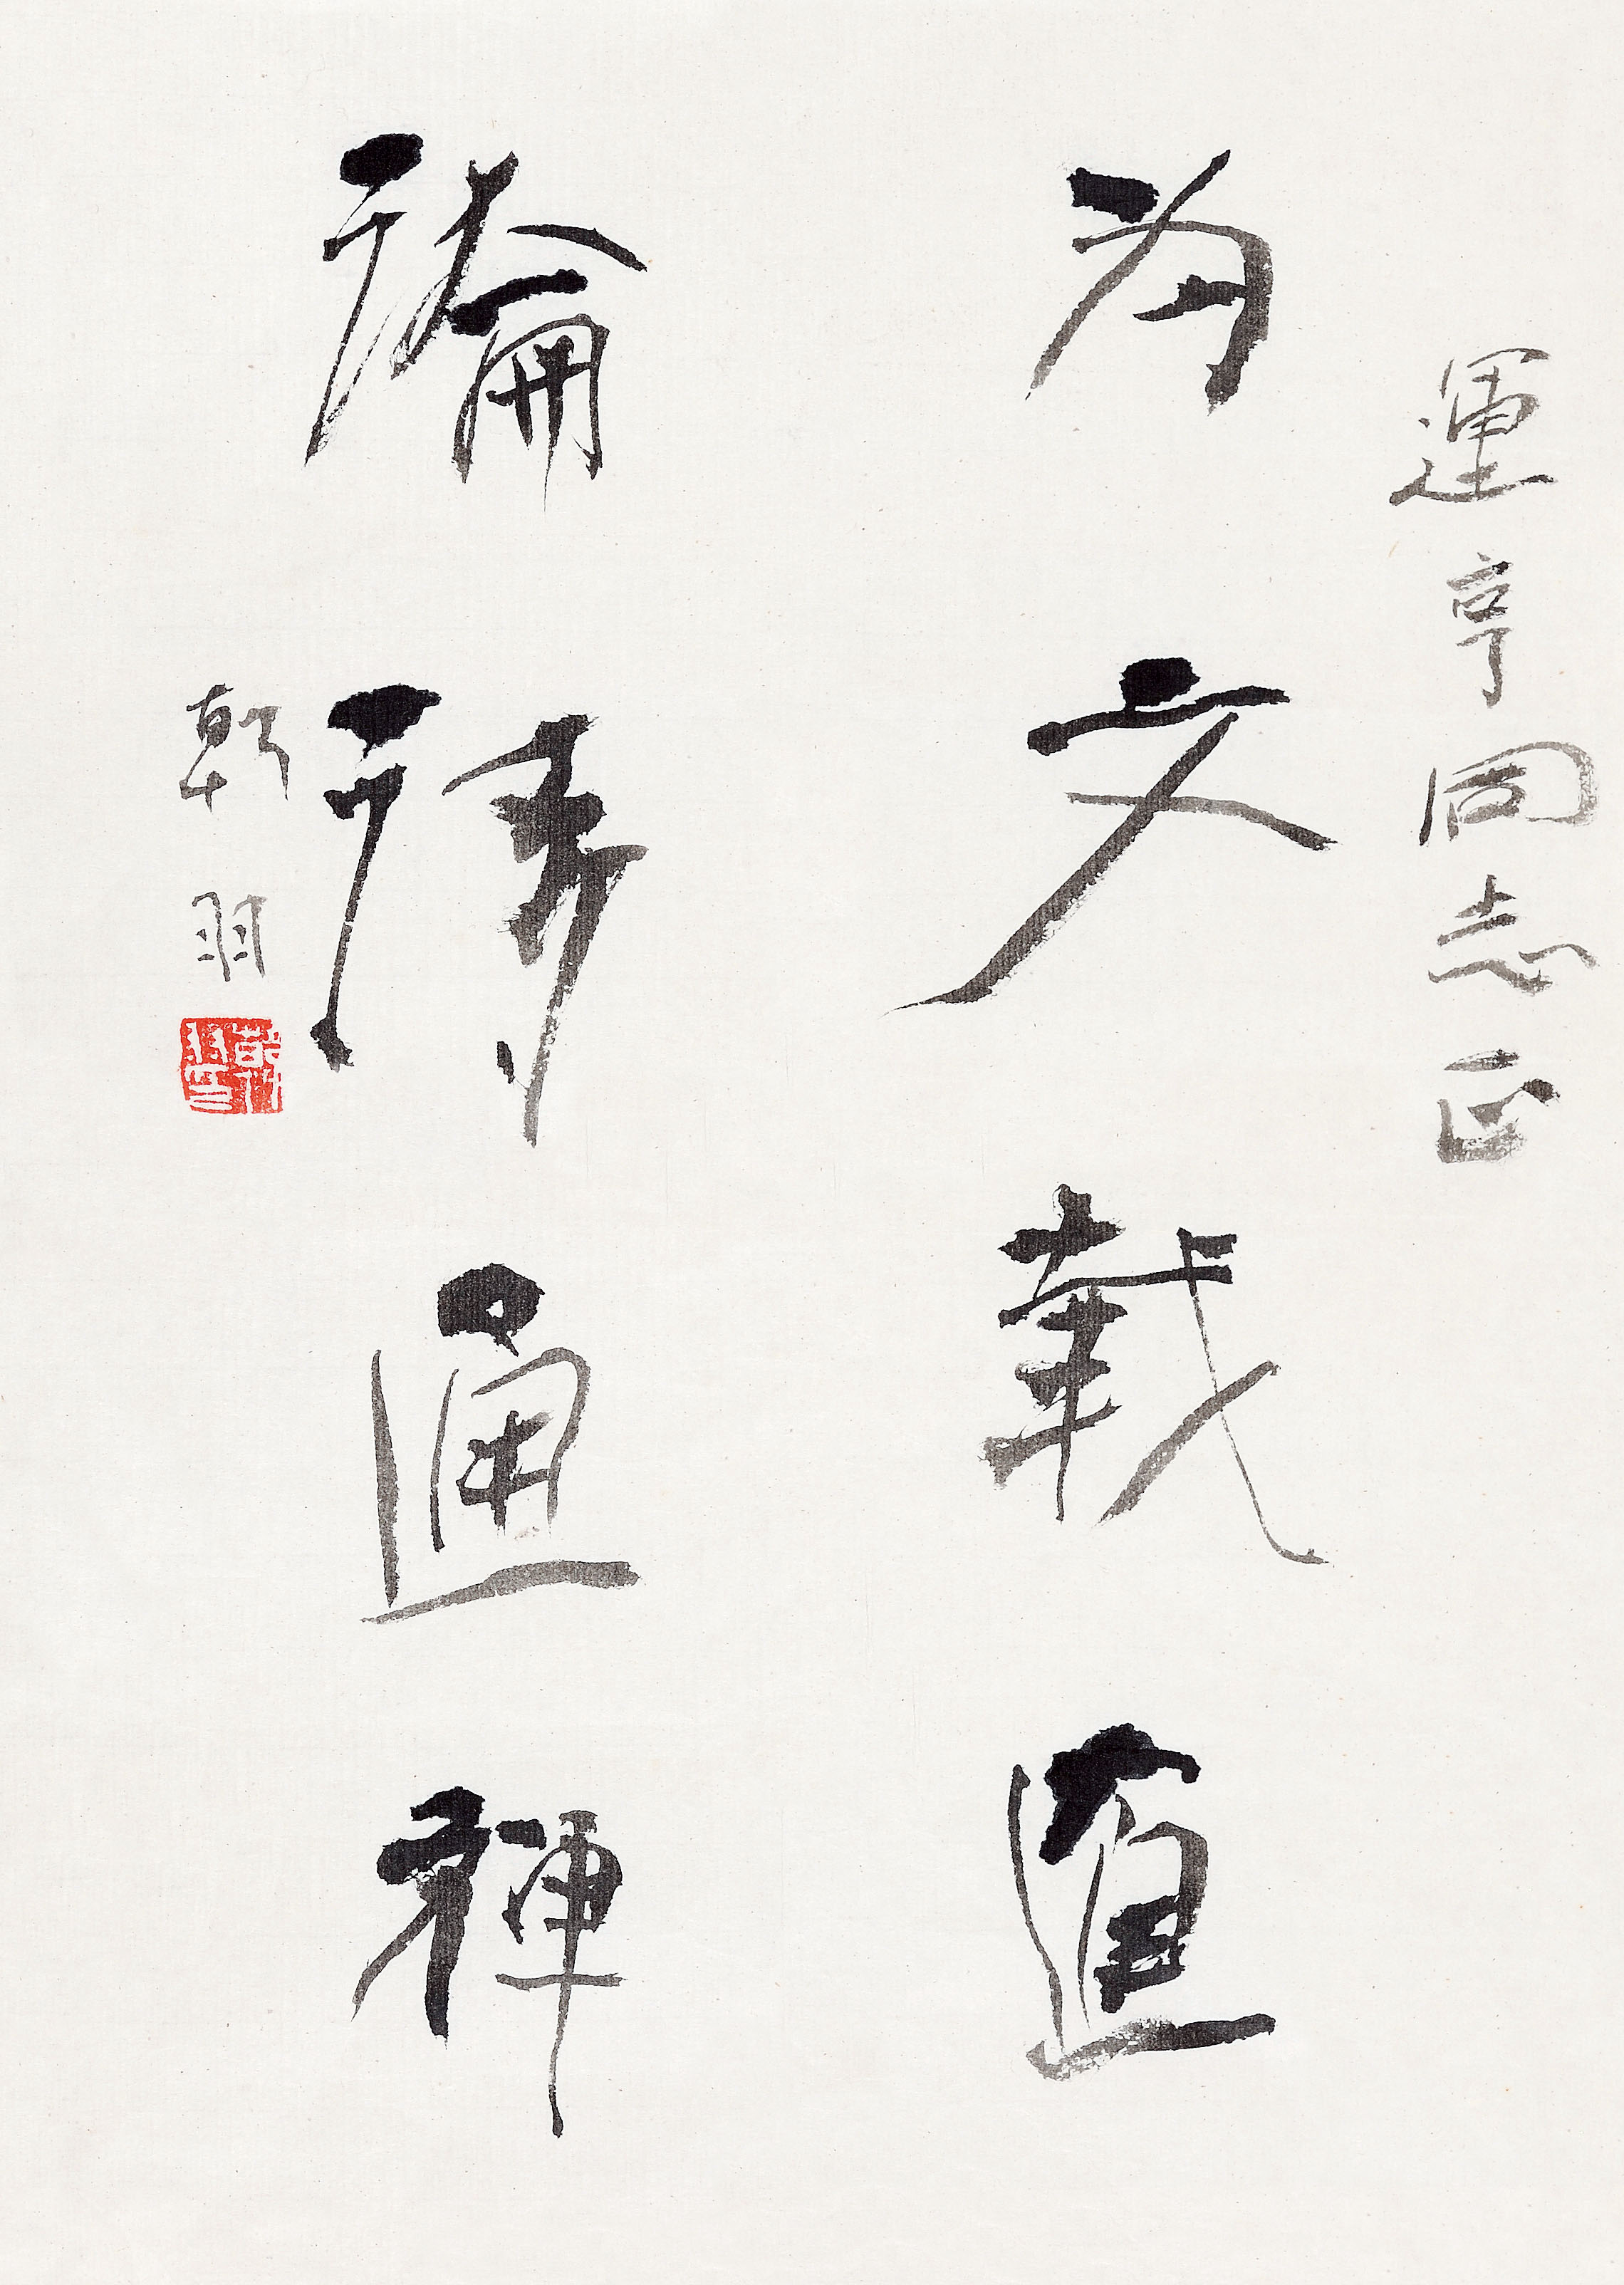 運亨同志正
為文載道
論詩通禪
韓羽